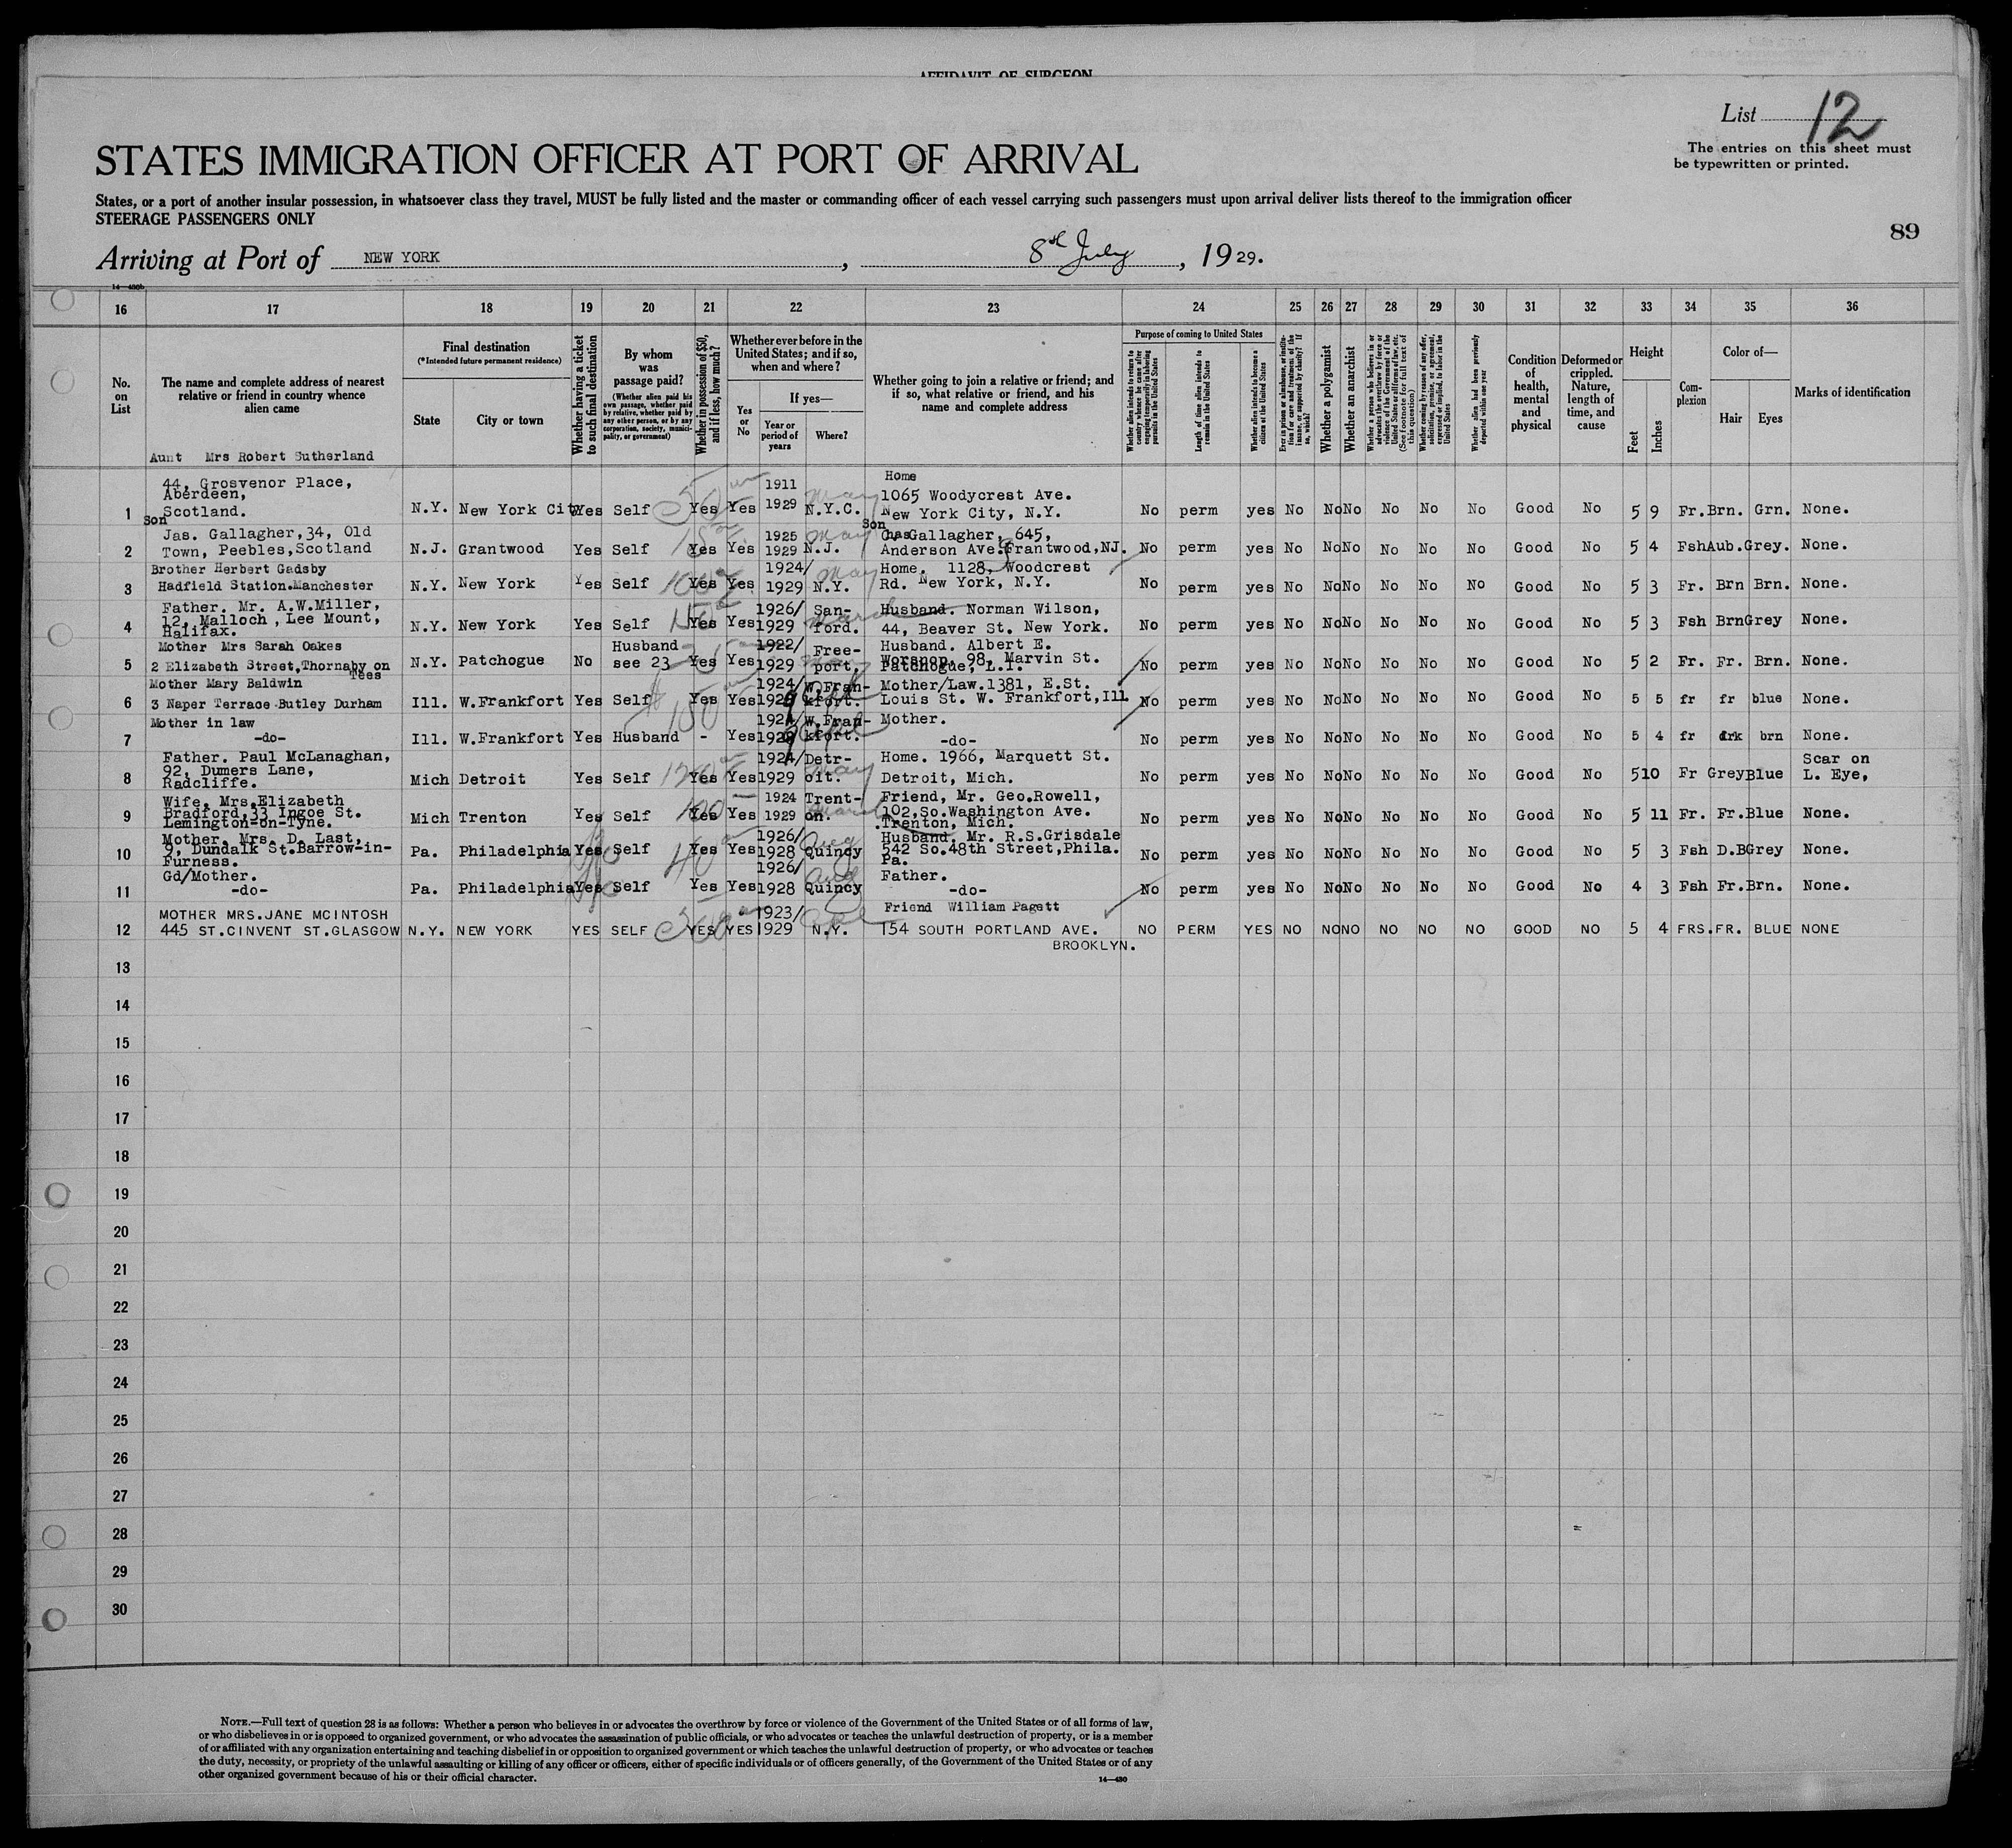 AFFIDAVIT OF SURGEON
List 12
The entries on this sheet must
be typewritten or printed.
STATES IMMIGRATION OFFICER AT PORT OF ARRIVAL
States, or a port of another insular possession, in whatsoever class they travel, MUST be fully listed and the master or commanding officer of each vessel carrying such passengers must upon arrival deliver lists thereof to the immigration officer
STEERAGE PASSENGERS ONLY
89
Arriving at Port of NEW YORK, 8th July, 1929.
14—480b
16 17 18 19 20 21 22 23 24 25 26 27 28 29 30 31 32 33 34 35 36
No. on List
The name and complete address of nearest relative or friend in country whence alien came
Final destination
(*Intended future permanent residence)
State
City or town
Whether having a ticket to such final destination
By whom was passage paid?
(Whether alien paid his own passage, whether paid by relative, whether paid by any other person, or by any corporation, society, municipality, or government)
Whether in possession of $50, and if less, how much?
Whether ever before in the United States; and if so, when and where?
Yes or No
If yes—
Year or period of years
Where?
Whether going to join a relative or friend; and if so, what relative or friend, and his name and complete address
Purpose of coming to United States
Whether alien intends to return to country whence he came after engaging temporarily in laboring pursuits in the United States
Length of time alien intends to remain in the United States
Whether alien intends to become a citizen of the United States
Ever in prison or almshouse, or institution for care and treatment of the insane, or supported by charity? If so, which?
Whether a polygamist
Whether an anarchist
Whether a person who believes in or advocates the overthrow by force or violence of the Government of the United States or all forms of law, etc. (See footnote for full text of this question)
Whether coming by reason of any offer, solicitation, promise, or agreement, expressed or implied, to labor in the United States
Whether alien had been previously deported within one year
Condition of health, mental and physical
Deformed or crippled. Nature, length of time, and cause
Height
Feet
Inches
Complexion
Color of—
Hair
Eyes
Marks of identification
Aunt Mrs Robert Sutherland
44, Grosvenor Place,
Aberdeen,
Scotland.
1 N.Y. New York City Yes Self Yes Yes 1911 1929 May N.Y.C. Home 1065 Woodycrest Ave. New York City, N.Y. No perm yes No No No No No No Good No 5 9 Fr. Brn. Grn. None.
Son
Jas. Gallagher, 34, Old
Town, Peebles, Scotland
2 N.J. Grantwood Yes Self Yes Yes 1925 1929 May N.J. Son Chas Gallagher, 645, Anderson Ave. Grantwood, NJ. No perm yes No No No No No No Good No 5 4 Fsh Aub. Grey. None.
Brother Herbert Gadsby
Hadfield Station. Manchester
3 N.Y. New York Yes Self 100 Yes Yes 1924/ 1929 May N.Y. Home. 1128, Woodcrest Rd. New York, N.Y. No perm yes No No No No No No Good No 5 3 Fr. Brn Brn. None.
Father. Mr. A.W.Miller,
12, Malloch, Lee Mount,
Halifax.
4 N.Y. New York Yes Self 150 Yes Yes 1926/ 1929 March San-ford. Husband. Norman Wilson, 44, Beaver St. New York. No perm yes No No No No No No Good No 5 3 Fsh Brn Grey None.
Mother Mrs Sarah Oakes
2 Elizabeth Street, Thornaby on
Tees
5 N.Y. Patchogue No Husband see 23 Yes Yes 1922/ 1929 Free-port. Husband. Albert E. Worsnop, 98, Marvin St. Patchogue, L.I. No perm yes No No No No No No Good No 5 2 Fr. Fr. Brn. None.
Mother Mary Baldwin
3 Naper Terrace Butley Durham
6 Ill. W.Frankfort Yes Self $150 Yes Yes 1924/ 1929 W.Fran-kfort. Mother/Law. 1381, E.St. Louis St. W. Frankfort, Ill No perm yes No No No No No No Good No 5 5 fr fr blue None.
Mother in law
-do-
7 Ill. W.Frankfort Yes Husband - Yes 1924/ W.Fran-kfort. Mother. -do- No perm yes No No No No No No Good No 5 4 fr drk brn None.
Father. Paul McLanaghan,
92, Dumers Lane,
Radcliffe.
8 Mich Detroit Yes Self Yes Yes 1924/ 1929 May Detr-oit. Home. 1966, Marquett St. Detroit, Mich. No perm yes No No No No No No Good No 5 10 Fr Grey Blue Scar on L. Eye,
Wife, Mrs. Elizabeth
Bradford, 33 Ingoe St.
Lemington-on-Tyne.
9 Mich Trenton Yes Self 100 Yes Yes 1924 1929 March Trent-on. Friend, Mr. Geo.Rowell, 102, So.Washington Ave. Trenton, Mich. No perm yes No No No No No No Good No 5 11 Fr. Fr. Blue None.
Mother. Mrs. D. Last,
9, Dundalk St. Barrow-in-
Furness.
10 Pa. Philadelphia Yes Self 40 Yes Yes 1926/ 1928 Aug Quincy Husband, Mr. R.S.Grisdale 542 So.48th Street, Phila. Pa. No perm yes No No No No No No Good No 5 3 Fsh D.B Grey None.
Gd/Mother.
-do-
11 Pa. Philadelphia Yes Self Yes Yes 1926/ 1928 Aug Quincy Father. -do- No perm yes No No No No No No Good No 4 3 Fsh Fr. Brn. None.
MOTHER MRS.JANE MCINTOSH
445 ST.CINVENT ST.GLASGOW
12 N.Y. NEW YORK YES SELF YES YES 1923/ 1929 N.Y. Friend William Pagett 154 SOUTH PORTLAND AVE. BROOKLYN. NO PERM YES NO NO NO NO NO NO GOOD NO 5 4 FRS. FR. BLUE NONE
13
14
15
16
17
18
19
20
21
22
23
24
25
26
27
28
29
30
NOTE.—Full text of question 28 is as follows: Whether a person who believes in or advocates the overthrow by force or violence of the Government of the United States or of all forms of law,
or who disbelieves in or is opposed to organized government, or who advocates the assassination of public officials, or who advocates or teaches the unlawful destruction of property, or is a member
of or affiliated with any organization entertaining and teaching disbelief in or opposition to organized government or which teaches the unlawful destruction of property, or who advocates or teaches
the duty, necessity, or propriety of the unlawful assaulting or killing of any officer or officers, either of specific individuals or of officers generally, of the Government of the United States or of any
other organized government because of his or their official character.
14—480